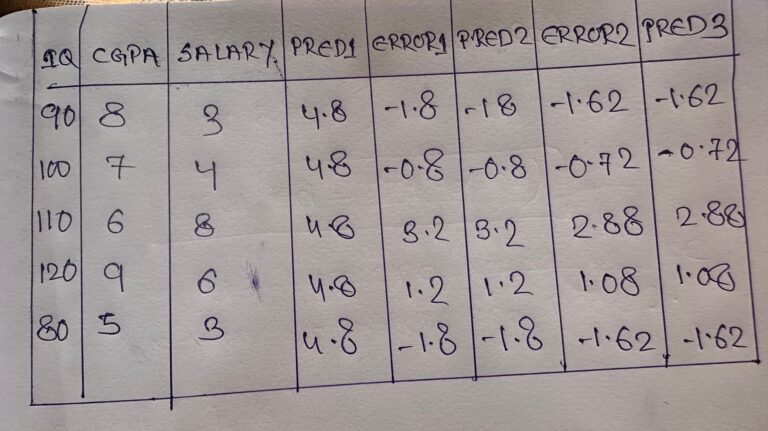 IQ CGPA SALARY PRED1 ERROR1 PRED2 ERROR2 PRED3
90 8 3 4.8 -1.8 -18 -1.62 -1.62
100 7 4 4.8 -0.8 -0.8 -0.72 -0.72
110 6 8 4.8 3.2 3.2 2.88 2.88
120 9 6 4.8 1.2 1.2 1.08 1.08
80 5 3 4.8 -1.8 -1.8 -1.62 -1.62